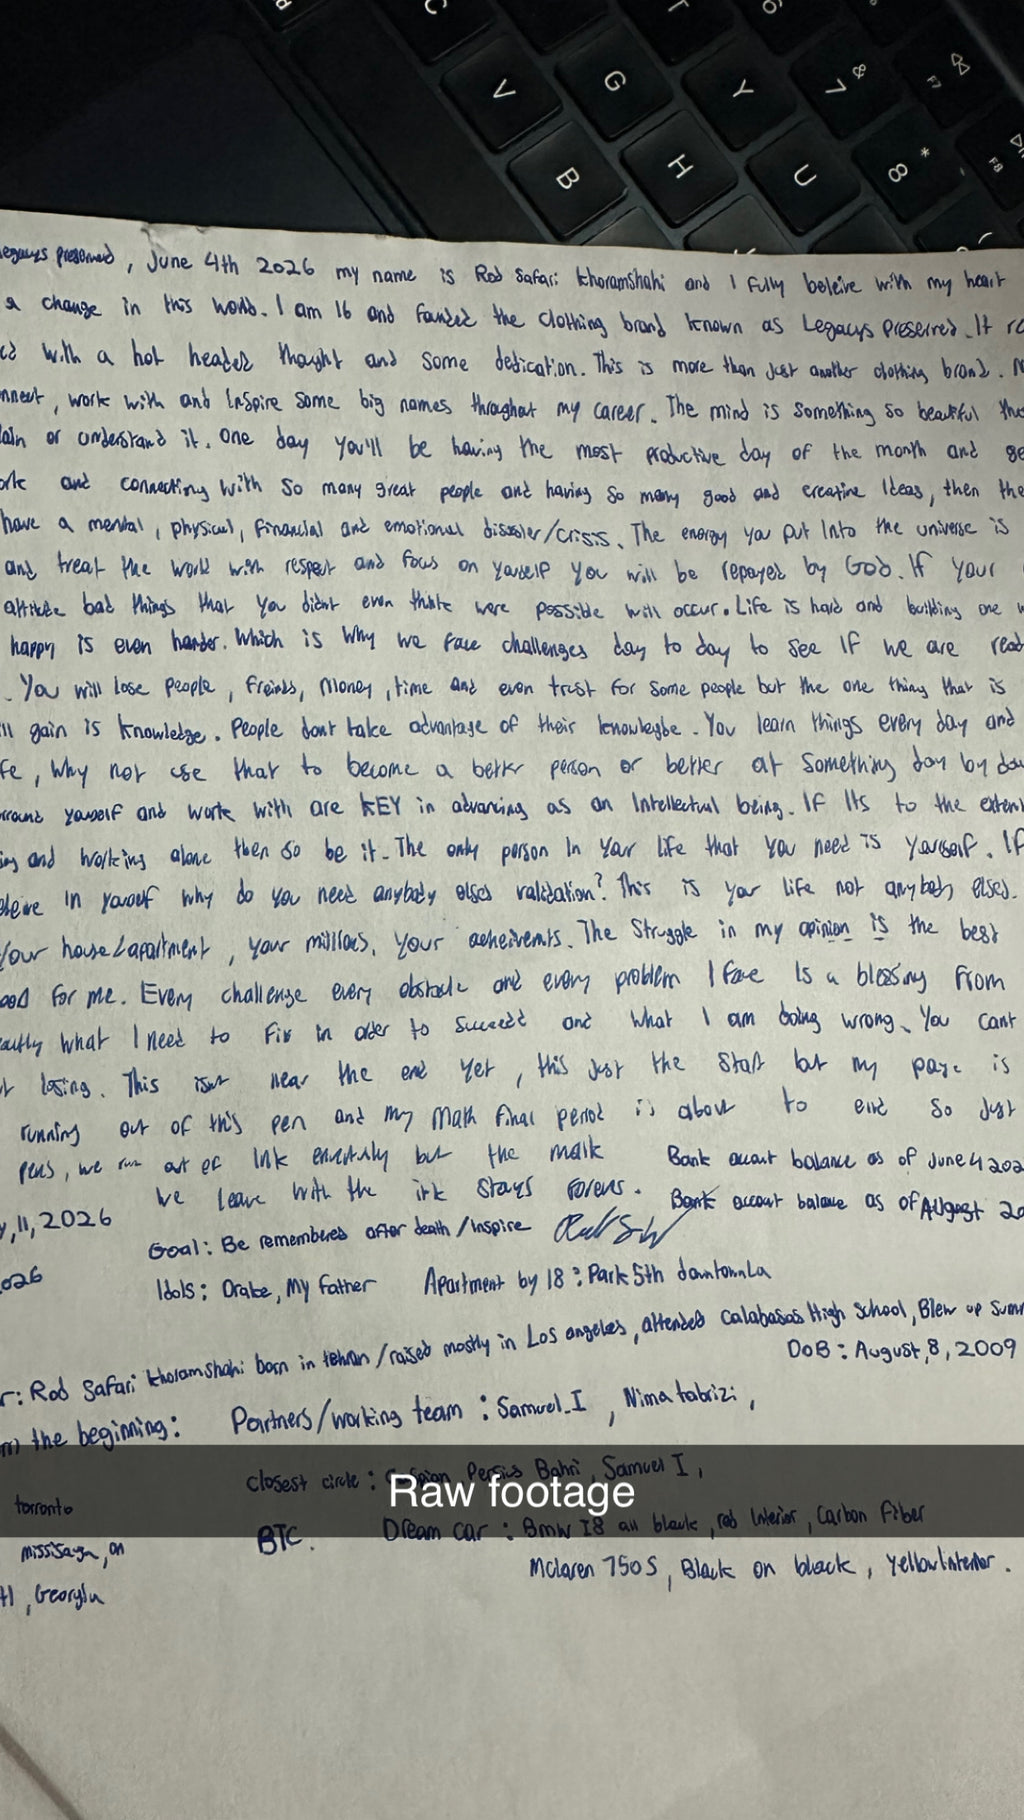 V G Y & 7 F7
B H U * 8 F8
Legacys preserved, June 4th 2026 my name is Rod Safari Khoramshahi and I fully beleive with my heart
a change in this world. I am 16 and founded the clothing brand known as Legacys Preserved. It
with a hot headed thought and some dedication. This is more than just another clothing brand.
work with and Inspire some big names throughout my career. The mind is something so beautiful
or understand it. One day you'll be having the most productive day of the month and
and connecting with so many great people and having so many good and creative Ideas, then the
have a mental, physical, financial and emotional disaster/crisis. The energy you put Into the universe is
and treat the world with respect and focus on yourself you will be repayed by God. If your
bad things that you didnt even think were possible will occur. Life is hard and building one
happy is even harder. Which is why we face challenges day to day to see If we are
. You will lose people, freinds, money, time and even trust for some people but the one thing that is
gain is knowledge. People dont take advantage of their knowlegbe. You learn things every day and
, why not use that to become a better person or better at something day by day
yourself and work with are KEY in advancing as an Intellectual being. If Its to the extent
and working alone then so be it. The only person In your life that you need is yourself. If
in yourself why do you need anybody elses validation? This is your life not anybody elses.
Your house/apartment, your millions, your acheivemts. The Struggle in my opinion is the best
for me. Every challenge every obstacle and every problem I face Is a blessing from
what I need to fix in order to succeed and what I am doing wrong. You cant
losing. This isnt near the end yet, this just the start but my page is
running out of this pen and my math final period is about to end so just
pens, we run out of Ink eventully but the mark
we leave with the ink stays forever.
Bank account balance as of June 4
Bank account balance as of August
11, 2026
Goal: Be remembered after death/Inspire
Idols: Drake, My father Apartment by 18: Park 5th downtown La
Rod Safari Khoramshahi born in tehran/raised mostly in Los angeles, attended Calabasas High School, Blew up
DOB: August, 8, 2009
the beginning: Partners/working team: Samuel.I, Nima tabrizi,
closest circle: Persius Bahri, Samuel I,
Raw footage
torronto
BTC. Dream car: Bmw I8 all black, red Interior, Carbon Fiber
on
Mclaren 750S, Black on black, Yellow Interior.
, Georgia